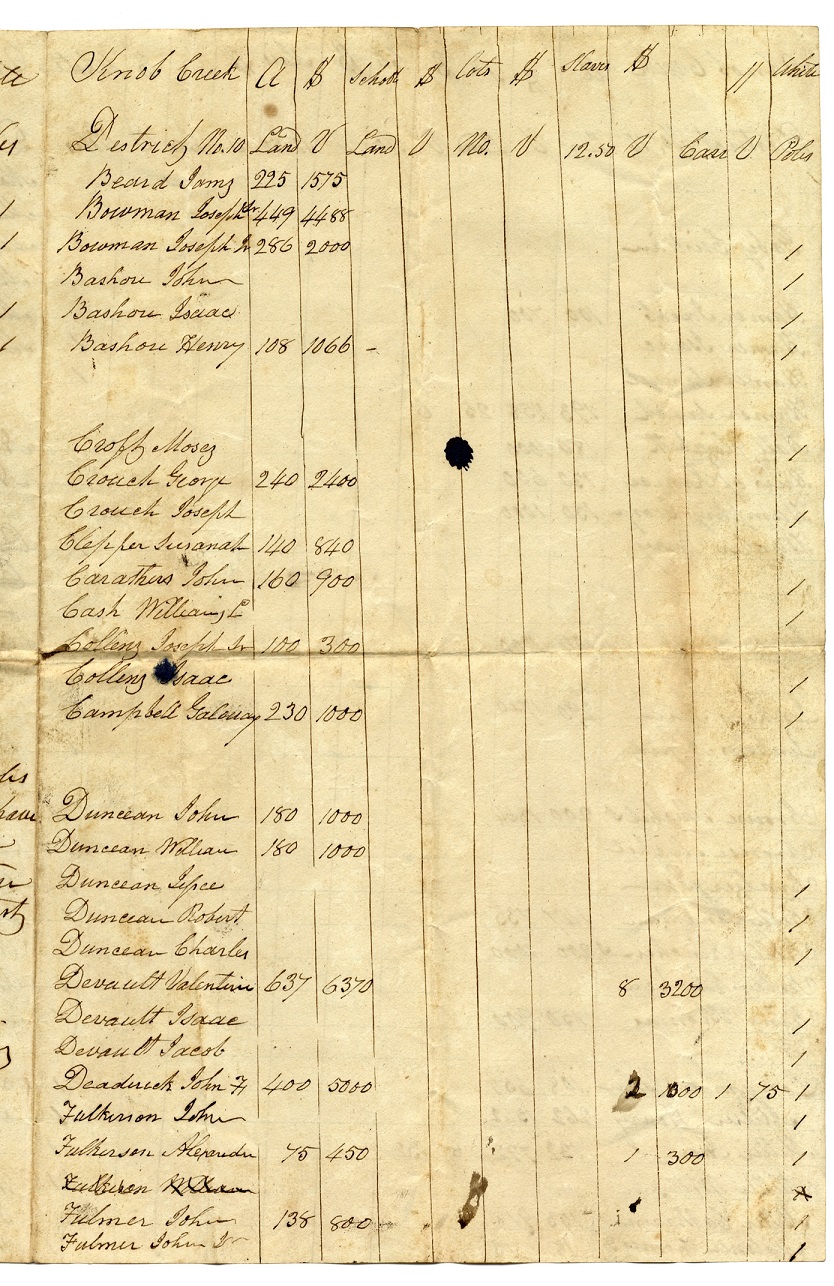 Knob Creek A $ School $ Lots $ Slaves $ // White
District No. 10 Land V Land V No. V 12.50 V Carr V Poles
Beard Jams 225 1575
Bowman Joseph Sr 449 4488
Bowman Joseph Jr 286 2000 1
Bashore John 1
Bashore Isaac 1
Bashore Henry 108 1066 – 1
Croft Moses 1
Crouch George 240 2400
Crouch Joseph 1
Clepper Susanah 140 840
Carathers John 160 900 1
Cash William C 1
Collens Joseph Sr 100 300
Collens Isaac 1
Campbell Galaway 230 1000 1
Duncean John 180 1000
Duncean William 180 1000
Duncean Jesse 1
Duncean Robert 1
Duncean Charles 1
Devault Valentine 637 6370 8 3200
Devault Isaac 1
Devault Jacob 1
Deaderick John F 400 5000 2 1000 1 75 1
Fulkerson John 1
Fulkerson Alexander 75 450 1 300 1
Fulkerson William
Fulmer John 138 800 1
Fulmer John Jr 1